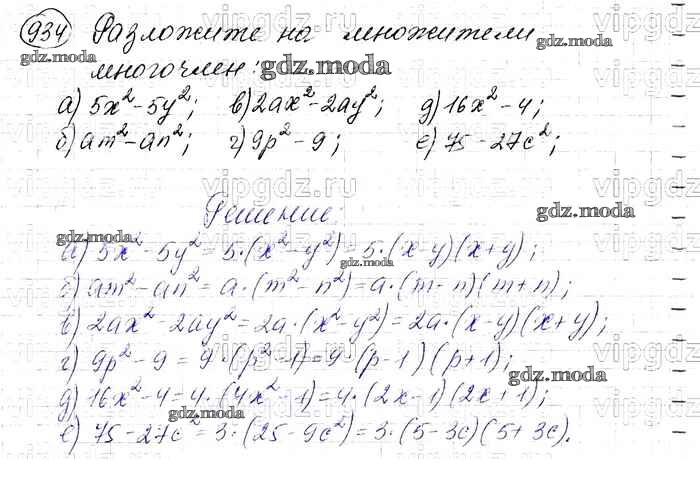 934 Разложите на множители
многочлен:
а) 5x²-5y²; в) 2ax²-2ay²; д) 16x²-4;
б) am²-an²; г) 9p²-9; е) 75-27c²;
Решение:
а) 5x²-5y² = 5·(x²-y²) = 5·(x-y)(x+y);
б) am²-an² = a·(m²-n²) = a·(m-n)(m+n);
в) 2ax²-2ay² = 2a·(x²-y²) = 2a·(x-y)(x+y);
г) 9p²-9 = 9·(p²-1) = 9·(p-1)(p+1);
д) 16x²-4 = 4·(4x²-1) = 4·(2x-1)(2x+1);
е) 75-27c² = 3·(25-9c²) = 3·(5-3c)(5+3c).